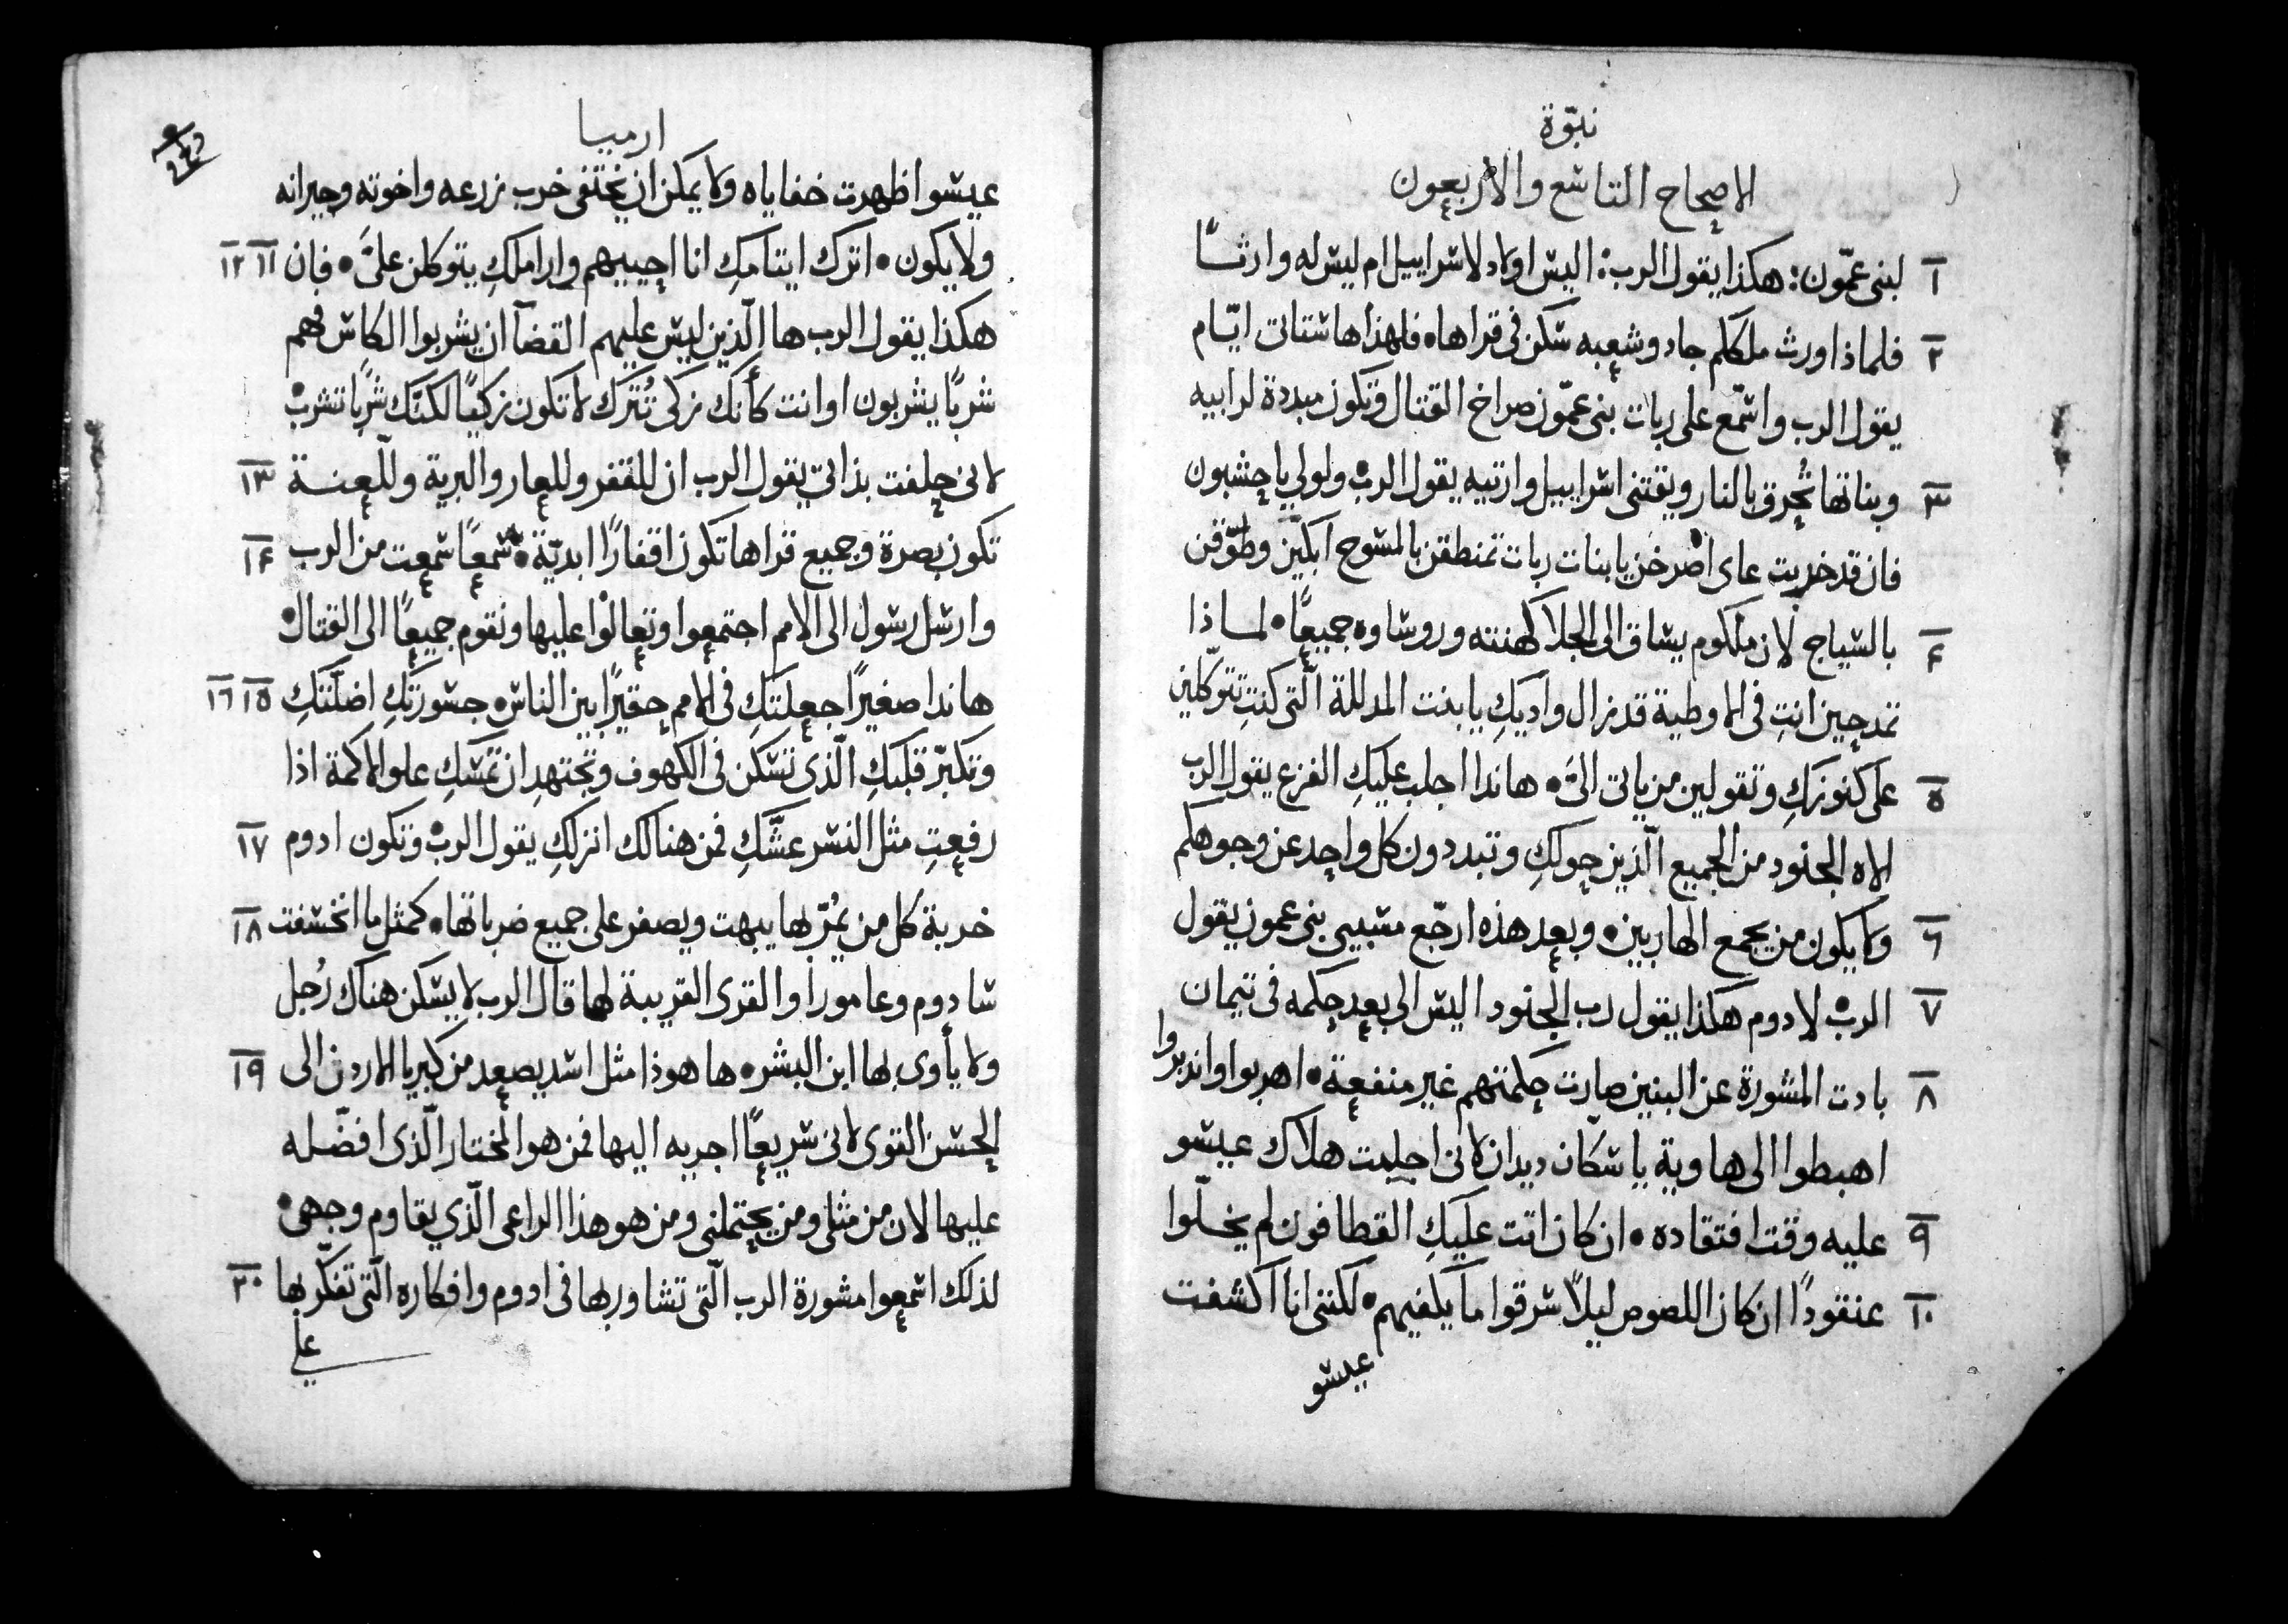 نبوّة
الاصحاح التاسع والاربعون
١ لبنى عمّون: هكذا يقول الرب: اليس اولاد لاسراييل ام ليس له وارثًا
٢ فلماذا اورث ملكلم جاد وشعبه سكن في قراها، فلهذا ها ستاتى ايّام
يقول الرب واسمّع على ربات بنى عمّون صراخ القتال وتكون مبددة لرابيه
٣ وبناتها تُحرق بالنار ويقتنى اسراييل وارتيه يقول الرب، ولولي يا حشبون
فان قد خربت عاى اصرخن يا بنات ربات تمنطقن بالمسوح ابكيّن وطوّفن
٤ بالسياج لان ملكوم يساق الى الجلا كهنته وروساوه جميعًا، لماذا
تمدحين انتِ في الاوطية قد نزال واديكِ يا بنت المدللة الّتى كنتِ تتوكّلين
٥ على كنوزكِ وتقولين من ياتى الىَّ، هانذا اجلب عليكِ الفزع يقول الرب
الاه الجنود من الجميع الّذين حولكِ وتبددون كل واحد عن وجوهكم
٦ ولا يكون من يجمع الهاربين، وبعد هذه ارجّع مسبيى بنى عمون يقول
٧ الرب، لادوم هكذا يقول رب الجنود اليس الى بعد حكمه في تيمان
٨ بادت المشورة عن البنين صارت حكمتهم غير منفعة، اهربوا واندبروا
اهبطوا الى هاوية يا سكّان ديدان لانى اجلبت هلاك عيسو
٩ عليه وقت افتقاده، ان كان اتت عليكِ القطافون لم يخلّوا
١٠ عنقودًا ان كان اللصوص ليلًا سرقوا ما يكفيهم، لكننى انا اكشفت
عيسو
ارميا
عيسو اظهرت خفاياه ولا يمكن ان يختفى خرب زرعه واخوته وجيرانه
ولا يكون، اترك ايتامكِ انا احييهم واراملكِ يتوكلن علىَّ، فان ١١ ١٢
هكذا يقول الرب ها الّذين ليس عليهم القضآ ان يشربوا الكاس فهم
شربًا يشربون اوانت كأنك زكى تُترك لا تكون زكيًا لكنّك شربًا تشرب
لانى حلفت بذاتى يقول الرب ان للقفر وللعار والبرية وللّعنة ١٣
تكون بصرة وجميع قراها تكون اقفارًا ابديّة، سمعًا سمعت من الرب ١٤
وارسل رسول الى الامم اجتمعوا وتعالوْا عليها ونقوم جميعًا الى القتال
هانذا صغيرًا جعلتكِ في الامم حقيرًا بين الناس، جسورتكِ اضلّتكِ ١٥ ١٦
وتكبّر قلبكِ الّذى تسكن في الكهوف وتجتهد ان تمسّكِ علو الاكمة اذا
رفعتِ مثل النسر عشّكِ فمن هنالك انزلكِ يقول الرب، وتكون ادوم ١٧
خربة كل من يمُرّ بها يبهت ويصفر على جميع ضرباتها، كمثل ما انخسفت ١٨
سادوم وعامورا والقرى القريبة لها قال الرب لا يسكن هناك رُجل
ولا يأوى بها ابن البشر، ها هوذا مثل اسد يصعد من كبريا الاردن الى ١٩
الحسن القوى لانى سريعًا اجريه اليها فمن هو المختار الّذى افضّله
عليها لان من مثلى ومن يحتملنى ومن هو هذا الراعى الّذي يقاوم وجهى،
لذلك اسمعوا مشورة الرب الّتى تشاور بها في ادوم وافكاره الّتى تفكّر بها ٢٠
على